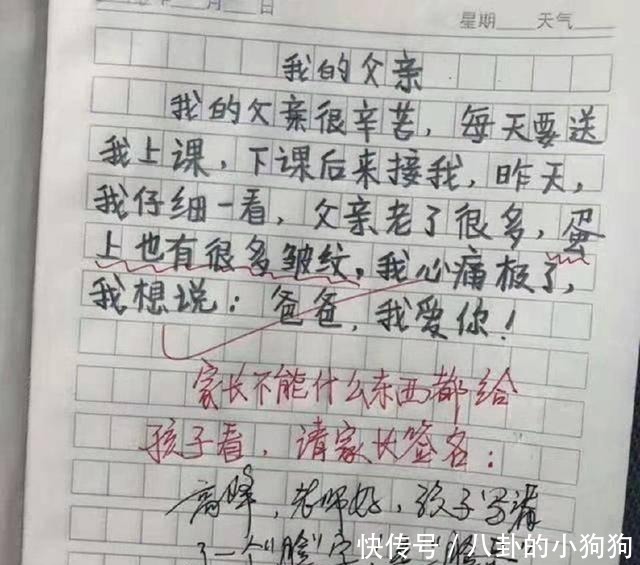 月 日 星期 天气
我的父亲
我的父亲很辛苦，每天要送
我上课，下课后来接我，昨天，
我仔细一看，父亲老了很多，蛋
上也有很多皱纹，我心痛极了，
我想说：爸爸，我爱你！
家长不能什么东西都给
孩子看，请家长签名：
高峰，老师好，孩子写漏
了一个"脸"字，
快传号/八卦的小狗狗